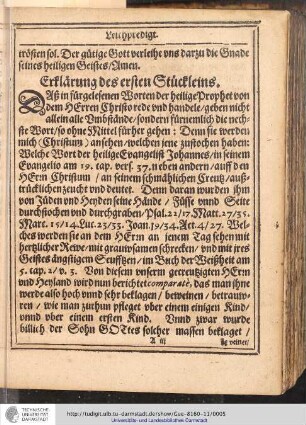 Leichpredigt.
trösten sol. Der gütige Gott verleihe vns darzu die Gnade
seines heiligen Geistes/Amen.
Erklärung des ersten Stückleins.
Daß in fürgelesenen Worten der heilige Prophet von
dem HErren Christo rede vnd handele/geben nicht
allein alle Vmbstände/sondern fürnemlich die nech-
ste Wort/so ohne Mittel fürher gehen: Denn sie werden
mich (Christum) ansehen/welchen jene zustochen haben:
Welche Wort der heilige Evangelist Johannes/in seinem
Evangelio am 19. cap. vers. 37. neben andern/auff den
HErrn Christum/an seinem schmählichen Creutz/auß-
trücklichen zeucht vnd deutet. Denn daran wurden ihm
von Jüden vnd Heyden seine Hände/Füsse vnnd Seite
durchstochen vnd durchgraben/Psal. 22/17. Matt. 27/35.
Marc. 15/24. Luc. 23/33. Joan. 19/34. Act. 4/27. Wel-
ches werden sie an dem HErrn an jenem Tag sehen mit
hertzlicher Rewe/mit grawsamen schrecken/vnd mit jres
Geistes ängstigem Seufftzen/im Buch der Weißheit am
5. cap. 2/v. 3. Von diesem vnserm gecreutzigten HErrn
vnd Heyland wird nun berichtet comparatè, das man ihne
werde also hoch vnnd sehr beklagen/beweinen/betraw-
ren/wie man zurhun pfleget vber einem einigen Kind/
vnnd vber einem ersten Kind. Vnnd zwar wurde
billich der Sohn GOttes solcher massen beklaget/
A iij
TECHNISCHE UNIVERSITÄT DARMSTADT
http://tudigit.ulb.tu-darmstadt.de/show/Gue-8160-11/0005
Universitäts- und Landesbibliothek Darmstadt